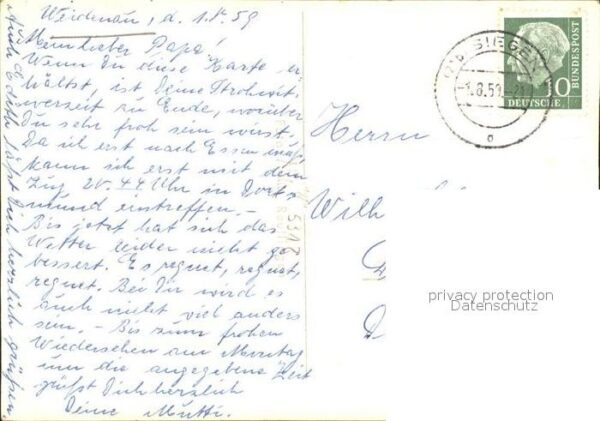 Weidenau, d. 1.8.59
Mein lieber Papa!
Wenn Du diese Karte er-
hältst, ist Deine Strohwit-
werzeit zu Ende, worüber
Du sehr froh sein wirst.
Da ich erst nach Essen muß,
kann ich erst mit dem
Zug 20.44 Uhr in Dort-
mund eintreffen. –
Bis jetzt hat sich das
Wetter leider nicht ge-
bessert. Es regnet, regnet,
regnet. Bei Dir wird es
auch nicht viel anders
sein. – Bis zum frohen
Wiedersehen am Montag
um die angegebene Zeit
grüßt Dich herzlich
Deine Mutti.
Auch Edith läßt Dich herzlich grüßen.
Herrn
Wilh
D
D
SIEGEN
-1.8.59.-21
o
10
DEUTSCHE
BUNDESPOST
privacy protection
Datenschutz